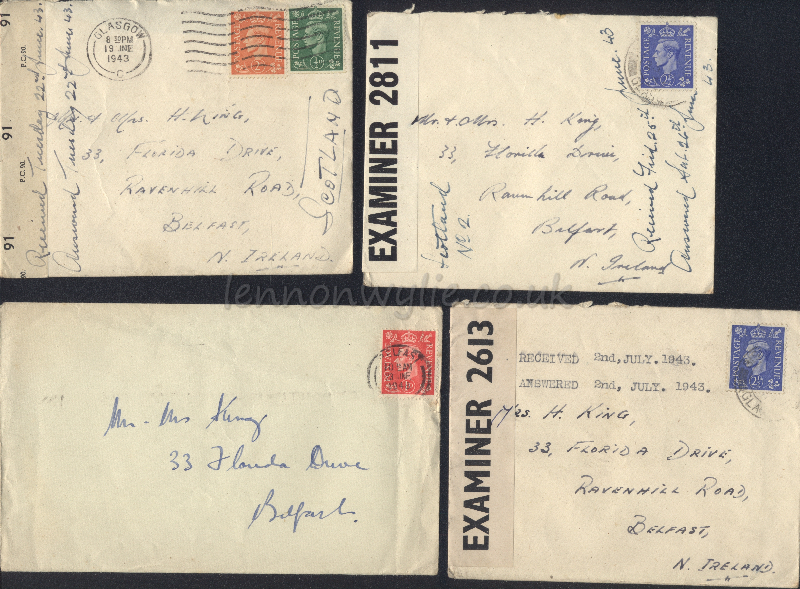 91
P.C.90.
91
P.C.90.
91
Received Tuesday 22nd June 43.
Answered Tuesday 22nd June 43.
GLASGOW
8 30PM
19 JNE
1943
C
POSTAGE REVENUE
Mr. & Mrs. H. KING,
33, FLORIDA DRIVE,
RAVENHILL ROAD,
BELFAST,
N. IRELAND.
SCOTLAND
EXAMINER 2811
POSTAGE REVENUE
Mr. & Mrs. H. King,
33, Florida Drive,
Ravenhill Road,
Belfast,
N. Ireland
Scotland
No 2.
Received Fri. 25th June 43
Answered Sat. 26th June 43.
lennonwylie.co.uk
POSTAGE REVENUE
1943
Mr - Mrs King
33 Florida Drive
Belfast.
EXAMINER 2613
RECEIVED 2nd, JULY. 1943.
ANSWERED 2nd, JULY. 1943.
POSTAGE REVENUE
Mrs. H. KING,
33, FLORIDA DRIVE,
RAVENHILL ROAD,
BELFAST,
N. IRELAND.